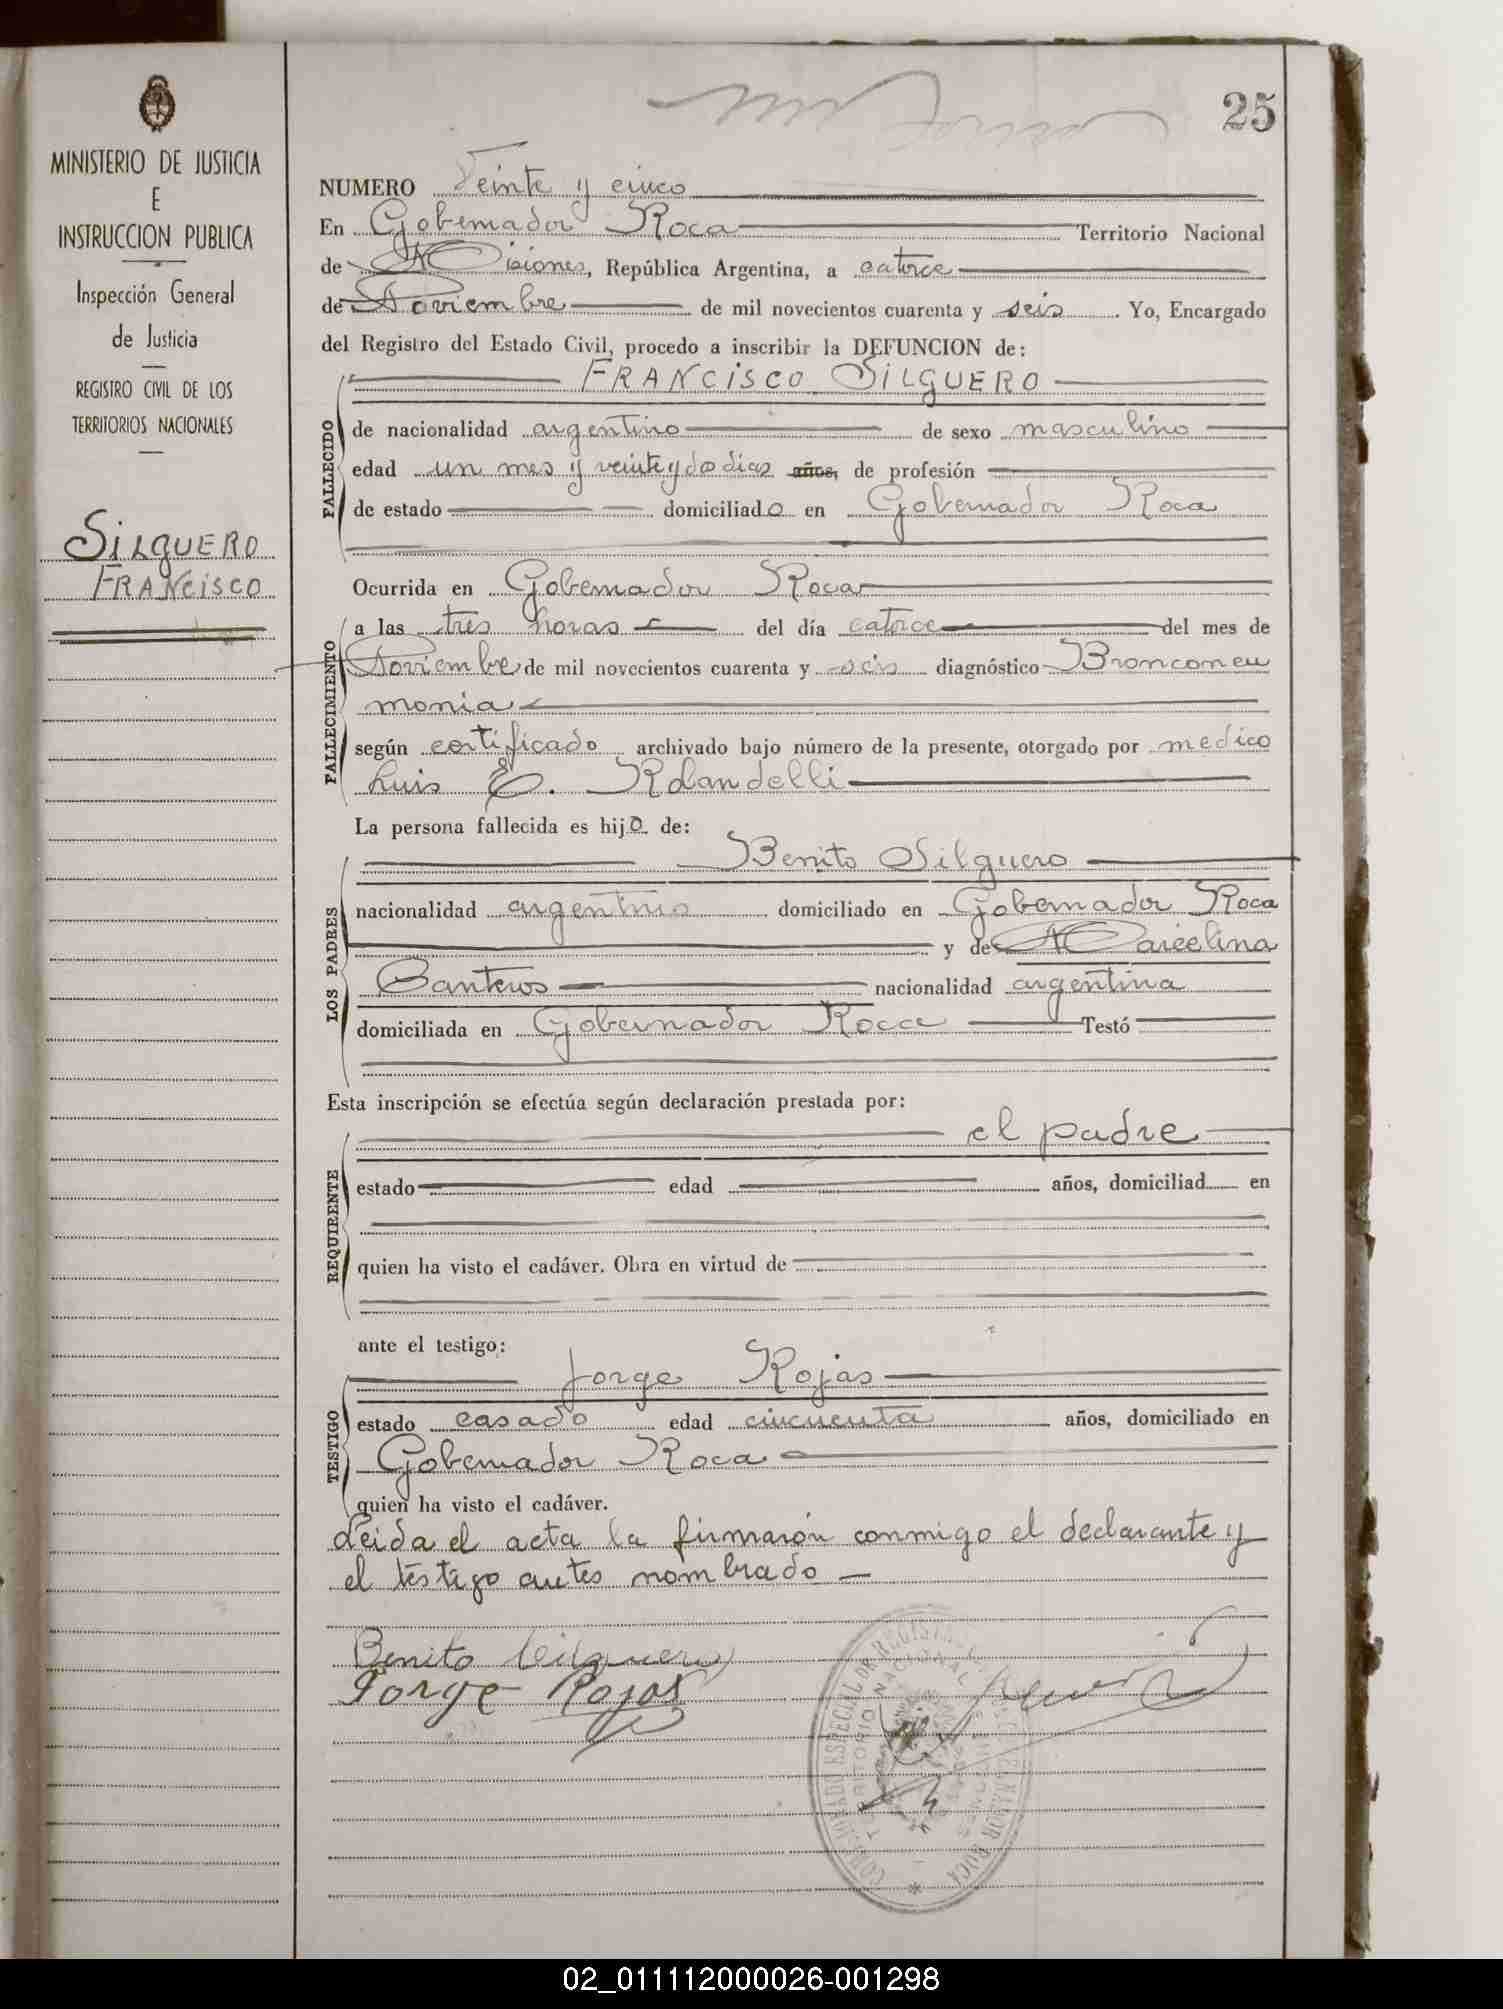 25
MINISTERIO DE JUSTICIA
E
INSTRUCCION PUBLICA
Inspección General
de Justicia
REGISTRO CIVIL DE LOS
TERRITORIOS NACIONALES
SILGUERO
FRANCISCO
NUMERO Veinte y cinco
En Gobernador Roca Territorio Nacional
de Misiones, República Argentina, a catorce
de Noviembre de mil novecientos cuarenta y seis. Yo, Encargado
del Registro del Estado Civil, procedo a inscribir la DEFUNCION de:
FRANCISCO SILGUERO
FALLECIDO
de nacionalidad argentino de sexo masculino
edad un mes y veinte y do dias años, de profesión
de estado domiciliado en Gobernador Roca
Ocurrida en Gobernador Roca
FALLECIMIENTO
a las tres horas del día catorce del mes de
Noviembre de mil novecientos cuarenta y seis diagnóstico Bronconeu
monia
según certificado archivado bajo número de la presente, otorgado por medico
Luis E. Rolandelli
La persona fallecida es hijo de:
LOS PADRES
Benito Silguero
nacionalidad argentino domiciliado en Gobernador Roca
y de Marcelina
Santeros nacionalidad argentina
domiciliada en Gobernador Roca Testó
Esta inscripción se efectúa según declaración prestada por:
REQUIRENTE
el padre
estado edad años, domiciliad en
quien ha visto el cadáver. Obra en virtud de
ante el testigo:
TESTIGO
Jorge Rojas
estado casado edad cincuenta años, domiciliado en
Gobernador Roca
quien ha visto el cadáver.
Leida el acta la firmarón conmigo el declarante y
el testigo antes nombrado
Benito Silguero
Jorge Rojas
02_011112000026-001298